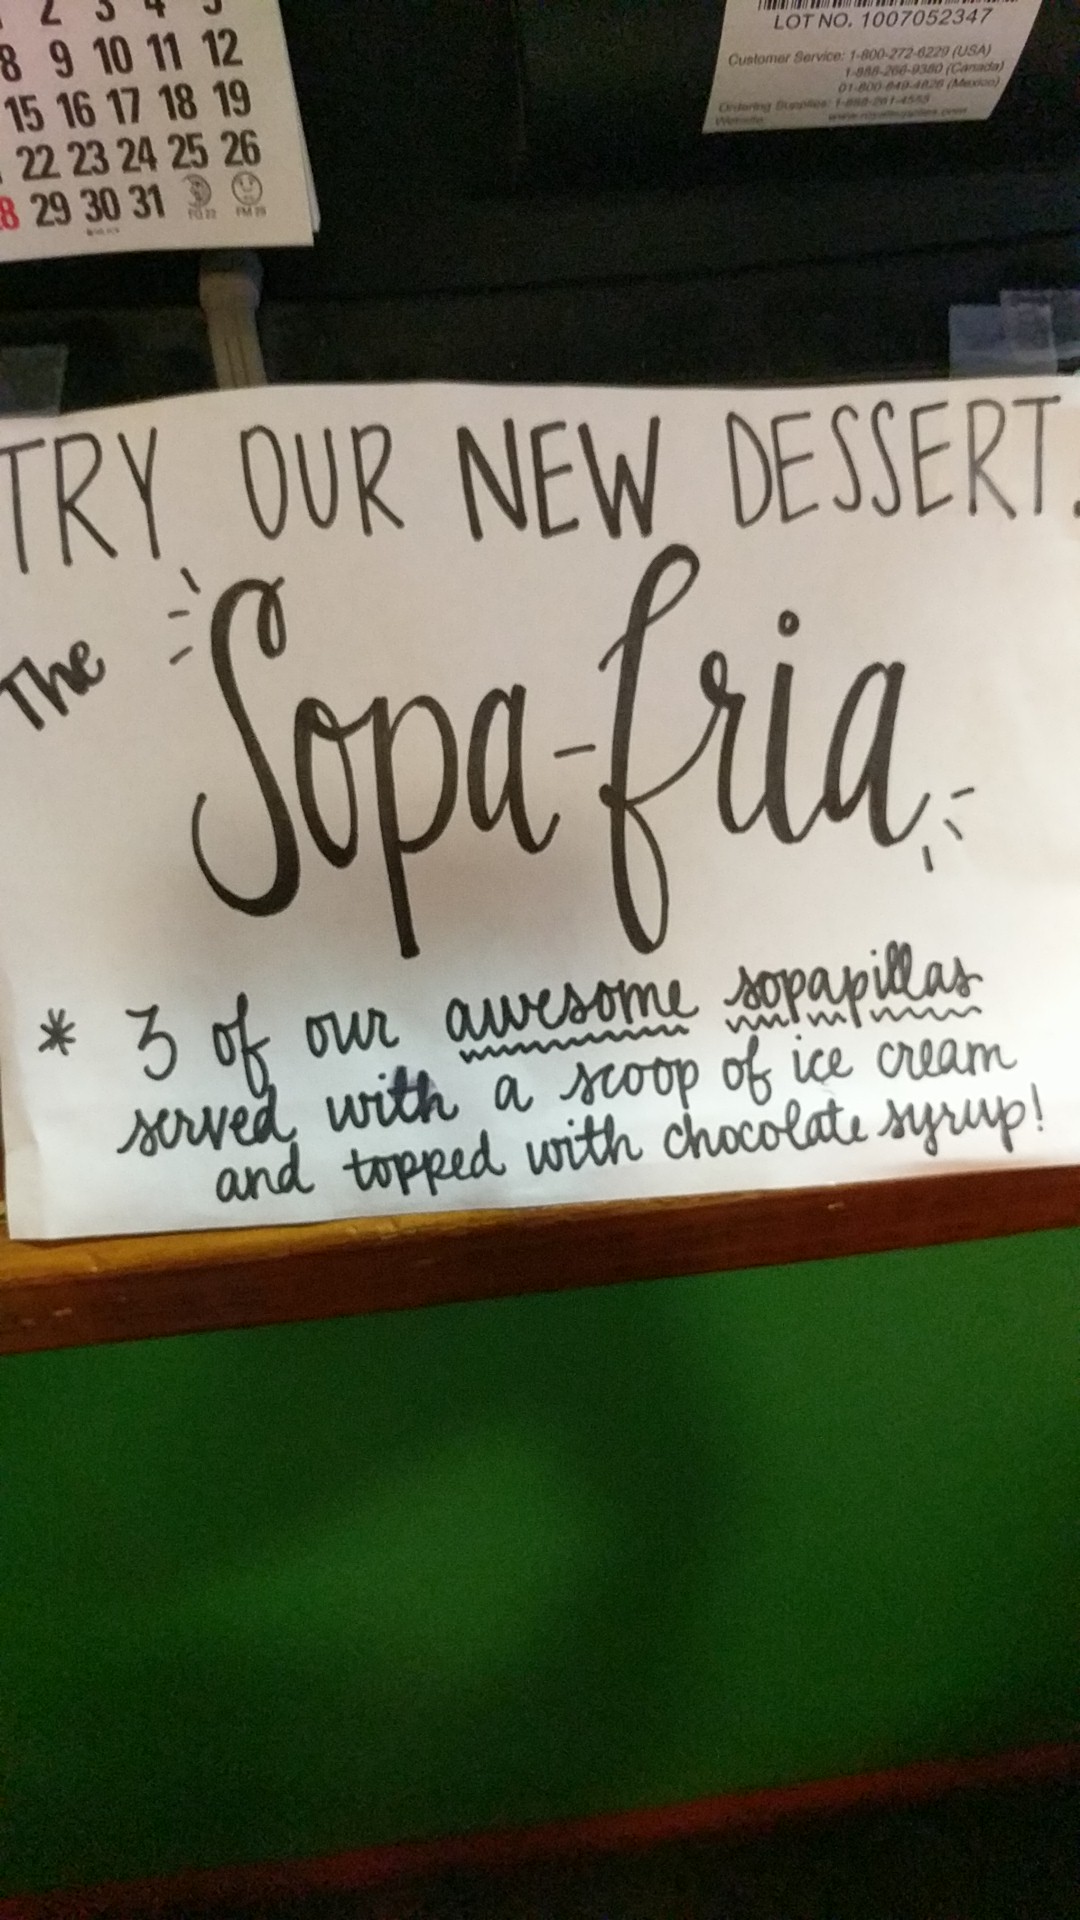 2 3 4 5
8 9 10 11 12
15 16 17 18 19
22 23 24 25 26
28 29 30 31
LOT NO. 1007052347
Customer Service: 1-800-272-6229 (USA)
1-888-266-9380 (Canada)
01-800-849-4826 (Mexico)
Ordering Supplies: 1-888-261-4553
Website:
TRY OUR NEW DESSERT.
The Sopa-fria
* 3 of our awesome sopapillas
served with a scoop of ice cream
and topped with chocolate syrup!